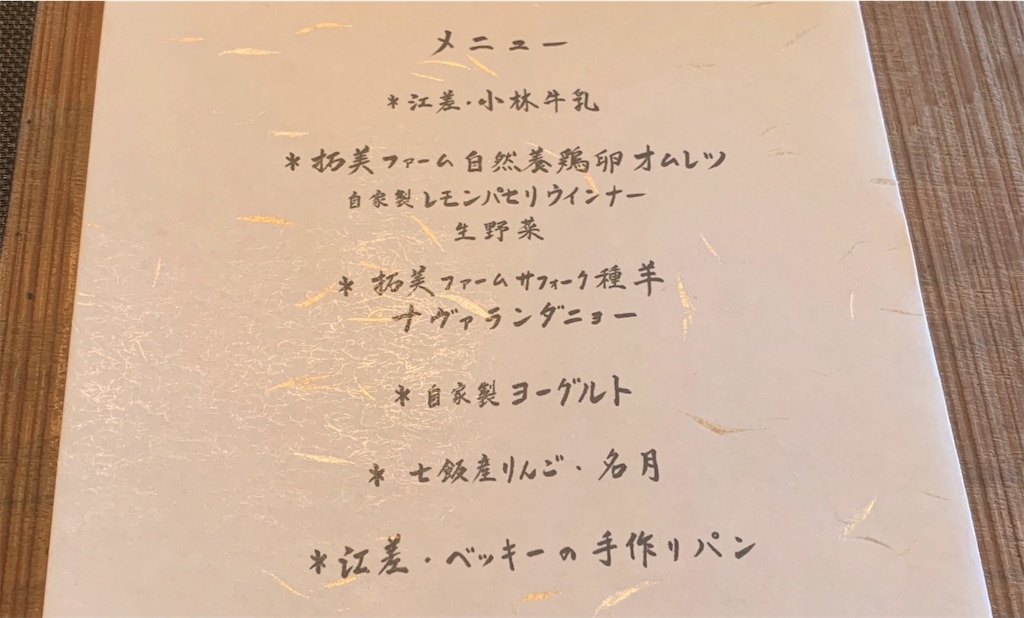 メニュー
*江差・小林牛乳
*拓美ファーム自然養鶏卵オムレツ
自家製レモンパセリウインナー
生野菜
*拓美ファームサフォーク種羊
ナヴァランダニョー
*自家製ヨーグルト
*七飯産りんご・名月
*江差・ベッキーの手作りパン